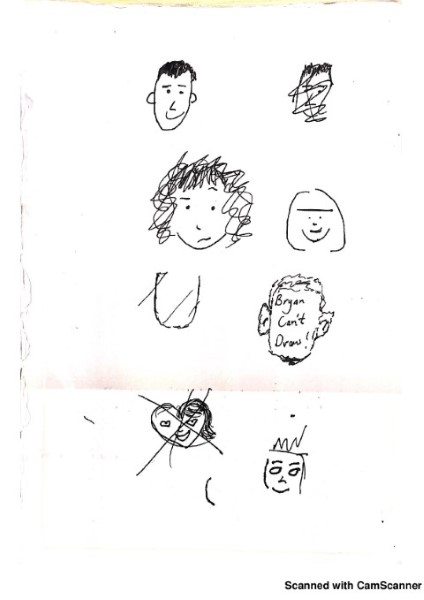 Bryan
Can't
Draw!!
Scanned with CamScanner